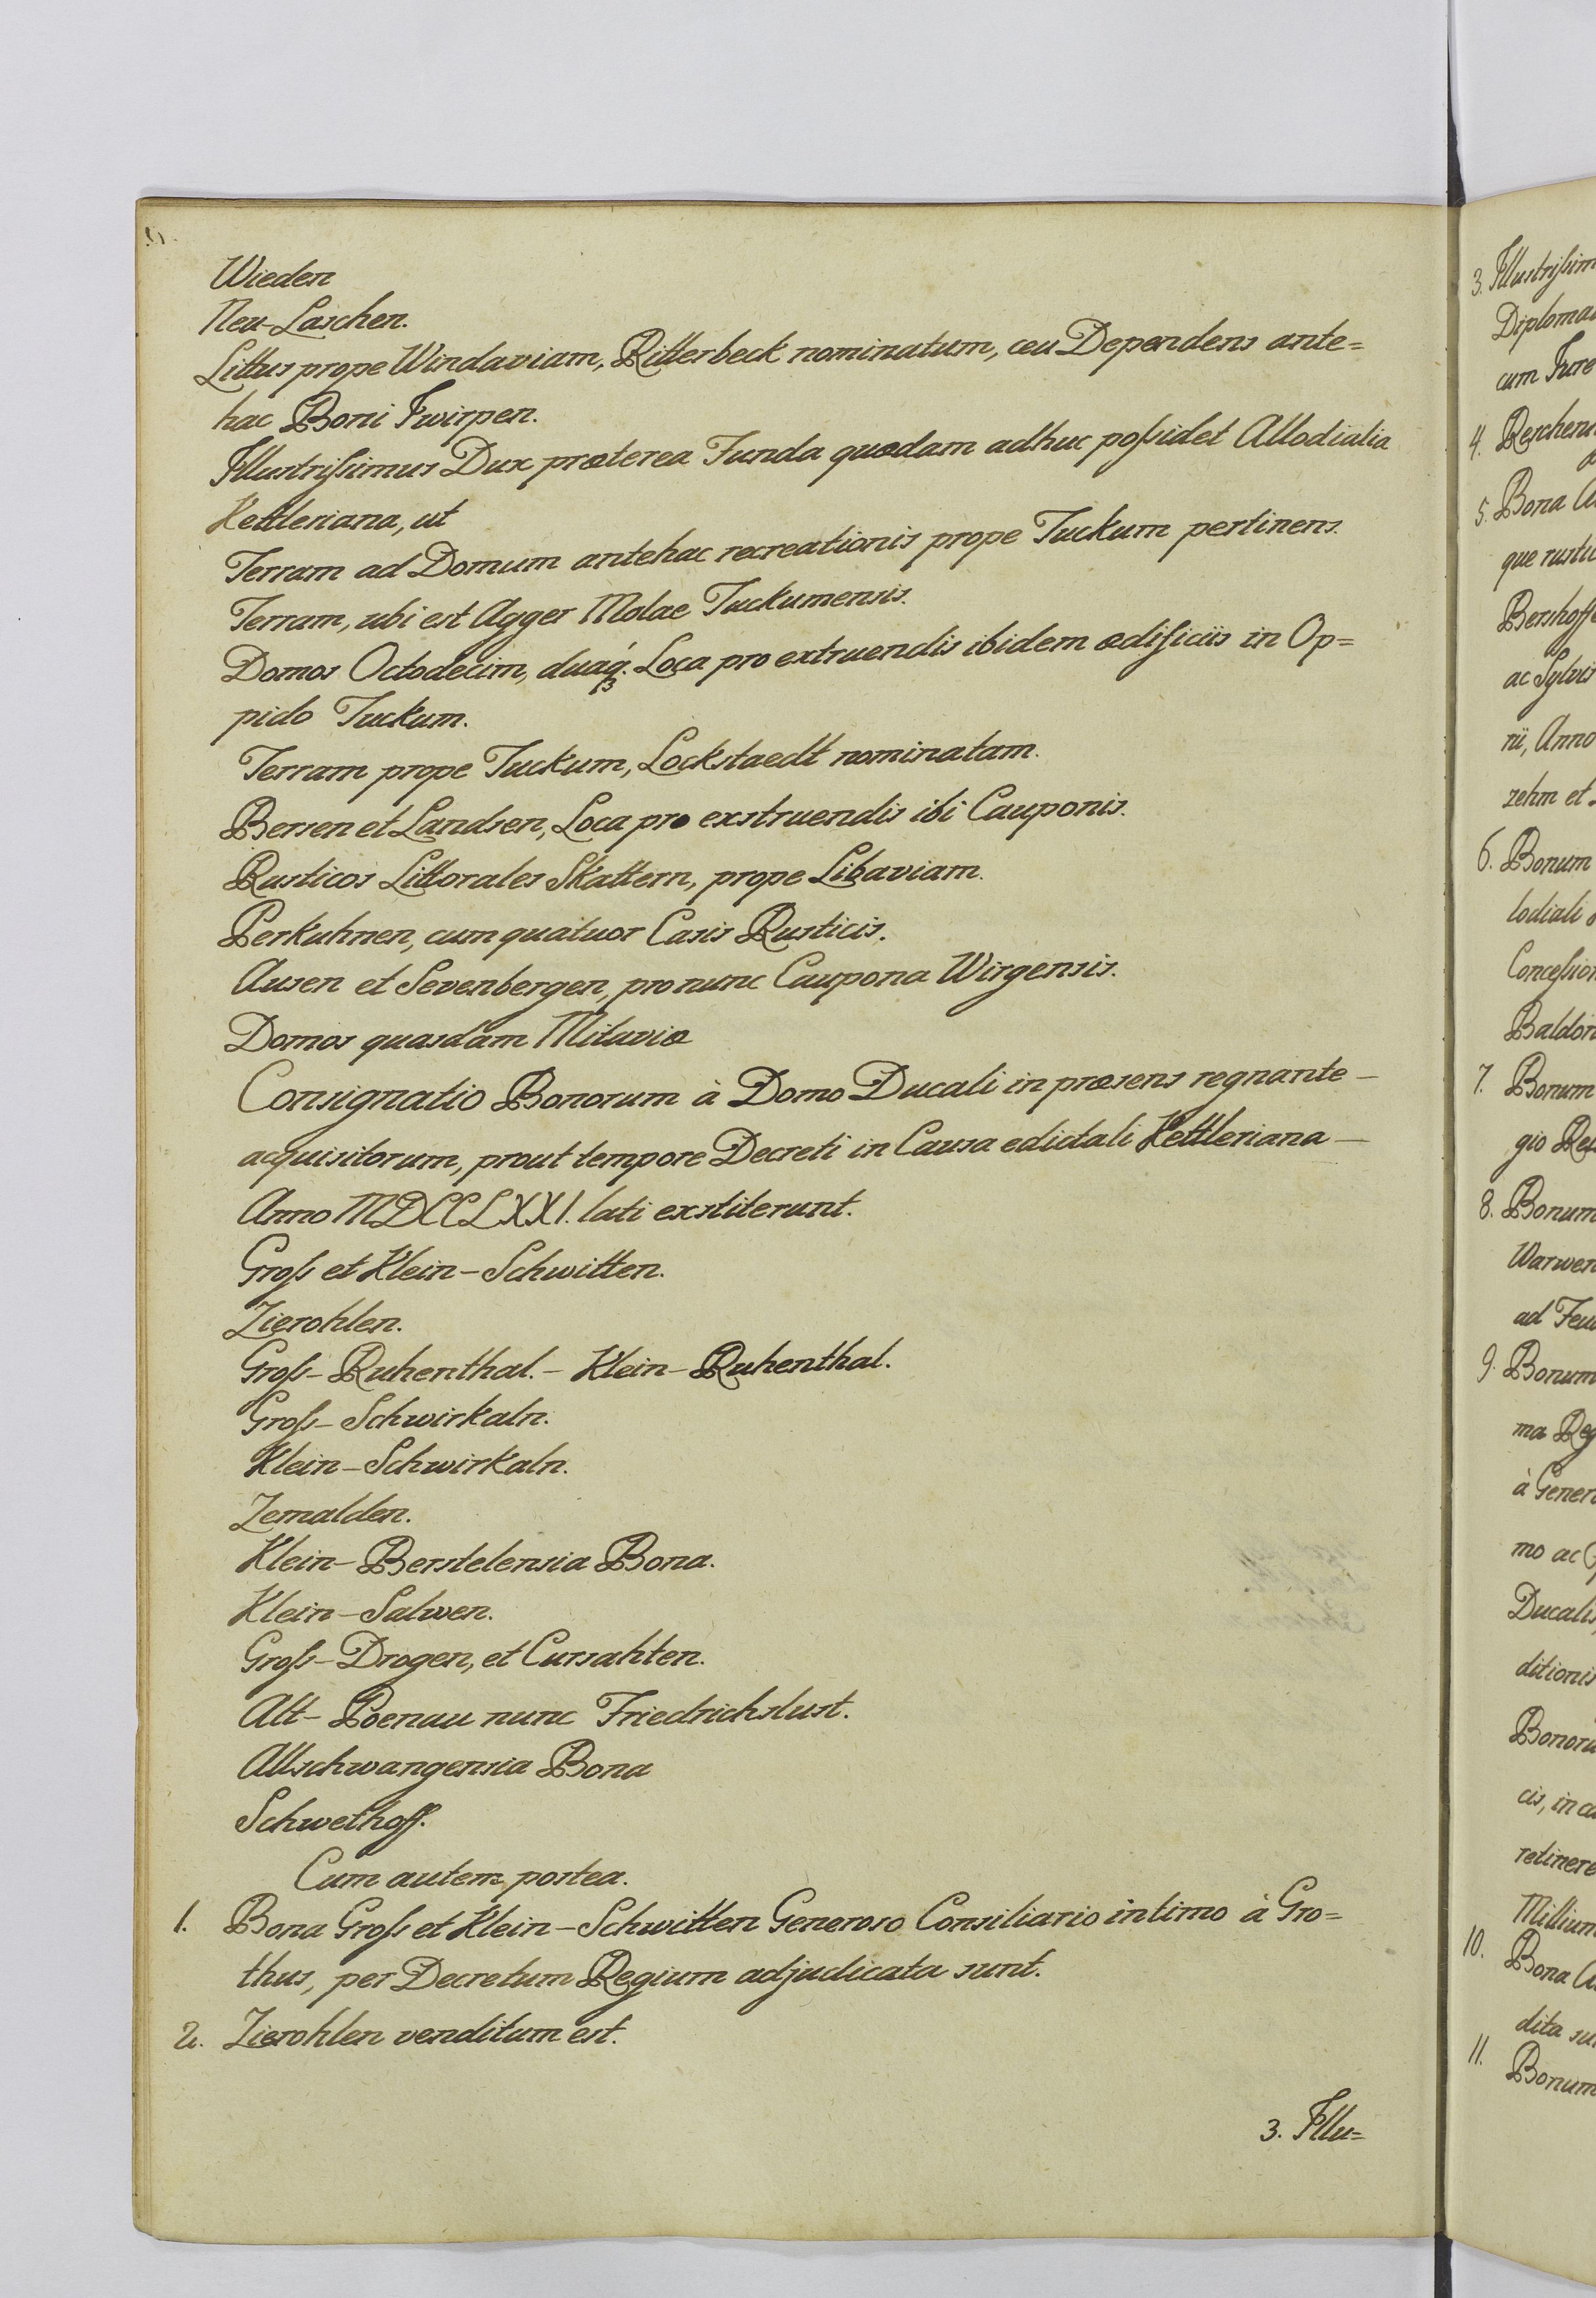 Wieden
Neu-Laschen.
Littus prope Windaviam, Ritterbeck nominatum, ceu Dependens ante=
hac Boni Zwirpen.
Illustrissimus Dux præterea Funda quædam adhuc possidet Allodialia
Kettleriana, ut
Terram ad Domum antehac recreationis prope Tuckum pertinens.
Terram, ubi est Agger Molae Tuckumensis.
Domos Octodecim, duaq́. Loca pro extruendis ibidem ædificiis in Op=
pido Tuckum.
Terram prope Tuckum, Lockstaedt nominatam.
Bersen et Landsen, Loca pro exstruendis ibi Cauponis.
Rusticos Littorales Skattern, prope Libaviam.
Perkuhnen, cum quatuor Casis Rusticis.
Ausen et Sevenbergen, pro nunc Caupona Wirgensis.
Domos quasdam Mitaviæ
Consignatio Bonorum à Domo Ducali in præsens regnante –
acquisitorum, prout tempore Decreti in Causa edictali Kettleriana –
Anno MDCCLXXI. lati exstiterunt.
Groß et Klein-Schwitten.
Zierohlen.
Groß-Ruhenthal.- Klein-Ruhenthal.
Groß-Schwirkaln.
Klein-Schwirkaln.
Zemalden.
Klein-Berstelensia Bona.
Klein-Salwen.
Groß-Drogen, et Cursahten.
Alt-Poenau nunc Friedrichslust.
Allschwangensia Bona
Schwethoff.
Cum autem postea.
1. Bona Groß et Klein-Schwitten Generoso Consiliario intimo à Gro=
thus, per Decretum Regium adjudicata sunt.
2. Zierohlen venditum est.
3. Illu=
3. Illustrissim
Diploma
cum Jure
4.
5. Bona A
que rusti
Bershoff
ac Sylvis
rii, Anno
zehm et
6. Bonum
lodiali
Concession
Baldon
7. Bonum
gio Re
8. Bonum
Warwen
ad Feu
9. Bonum
ma Reg
à Gener
mo ac
Ducalis
ditionis
Bonoru
cis, in ca
retinere
Millium
10. Bona
dita su
11. Bonum